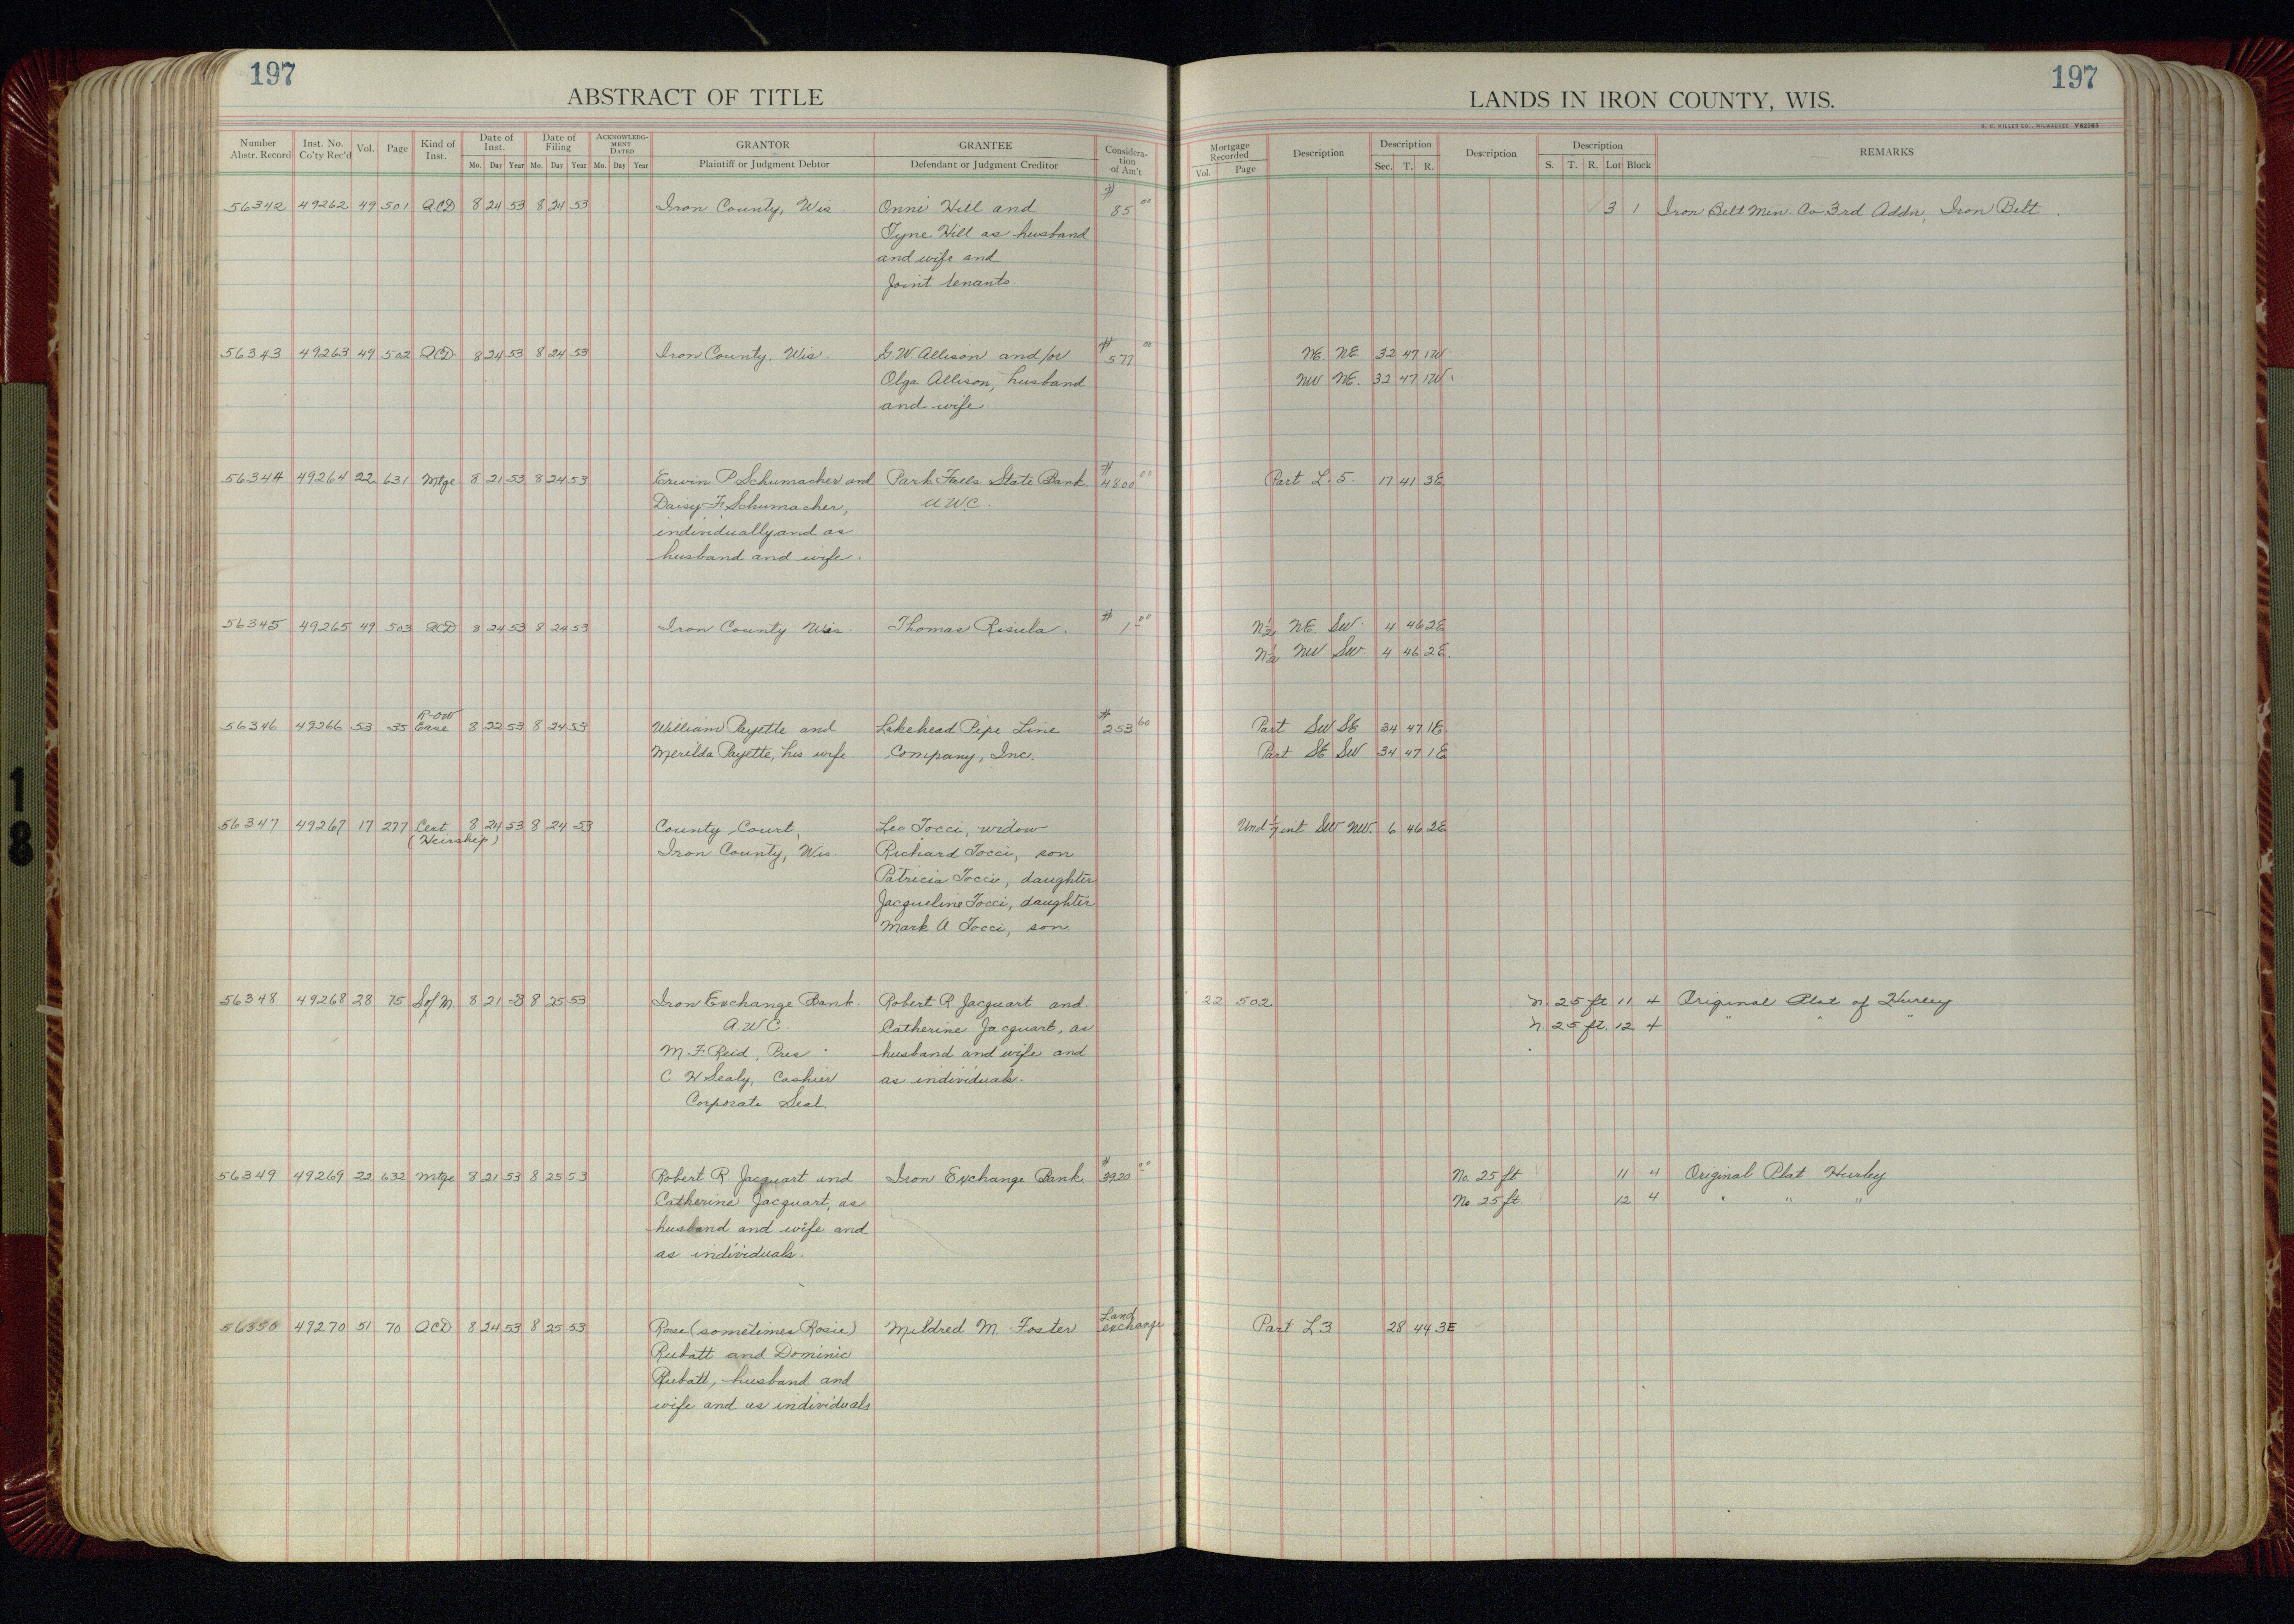 197
ABSTRACT OF TITLE
LANDS IN IRON COUNTY, WIS.
197
Number Abstr. Record | Inst. No. Co'ty Rec'd | Vol. | Page | Kind of Inst. | Date of Inst. Mo. Day Year | Date of Filing Mo. Day Year | ACKNOWLEDGMENT DATED Mo. Day Year | GRANTOR Plaintiff or Judgment Debtor | GRANTEE Defendant or Judgment Creditor | Consideration of Am't | Mortgage Recorded Vol. Page | Description | Description Sec. T. R. | Description | Description S. T. R. Lot Block | REMARKS
56342 49262 49 501 QCD 8 24 53 8 24 53 Iron County, Wis Onni Hill and # 85 00 3 1 Iron Belt Min. Co 3rd Addn, Iron Belt.
Tyne Hill as husband
and wife and
Joint tenants.
56343 49263 49 502 QCD 8 24 53 8 24 53 Iron County, Wis. G.W. Allison and/or # 577 00 NE. NE. 32 47 1W.
Olga Allison, husband NW NE. 32 47 1W.
and wife.
56344 49264 22 631 Mtge 8 21 53 8 24 53 Erwin P Schumacher and Park Falls State Bank # 4800 00 Part L. 5. 17 41 3E
Daisy F. Schumacher, AWC.
individually and as
husband and wife.
56345 49265 49 503 QCD 8 24 53 8 24 53 Iron County Wis. Thomas Risula. # 1 00 N½ NE. SW. 4 46 2E
N½ NW SW 4 46 2E.
R-OW
56346 49266 53 35 Ease 8 22 53 8 24 53 William Payette and Lakehead Pipe Line # 253 60 Part SW SE 34 47 1E.
Merilda Payette, his wife. Company, Inc. Part SE SW 34 47 1E
56347 49267 17 277 Cert 8 24 53 8 24 53 County Court, Leo Tocci, widow Und 1/7 int SW NW. 6 46 2E
(Heirship) Iron County, Wis. Richard Tocci, son
Patricia Tocci, daughter
Jacqueline Tocci, daughter
Mark A. Tocci, son.
56348 49268 28 75 S of M. 8 21 53 8 25 53 Iron Exchange Bank. Robert R Jacquart and 22 502 N. 25 ft 11 4 Original Plat of Hurley
A.W.C. Catherine Jacquart, as N. 25 ft. 12 4 " " "
M. F. Reid, Pres. husband and wife and
C. H Sealy, Cashier as individuals.
Corporate Seal.
56349 49269 22 632 Mtge 8 21 53 8 25 53 Robert R. Jacquart and Iron Exchange Bank # 3920 00 No. 25 ft 11 4 Original Plat Hurley
Catherine Jacquart, as No 25 ft. 12 4 " " "
husband and wife and
as individuals.
56350 49270 51 70 QCD 8 24 53 8 25 53 Rose (sometimes Rosie) Mildred M. Foster Land exchange Part L 3 28 44 3E
Rubatt and Dominic
Rubatt, husband and
wife and as individuals
18